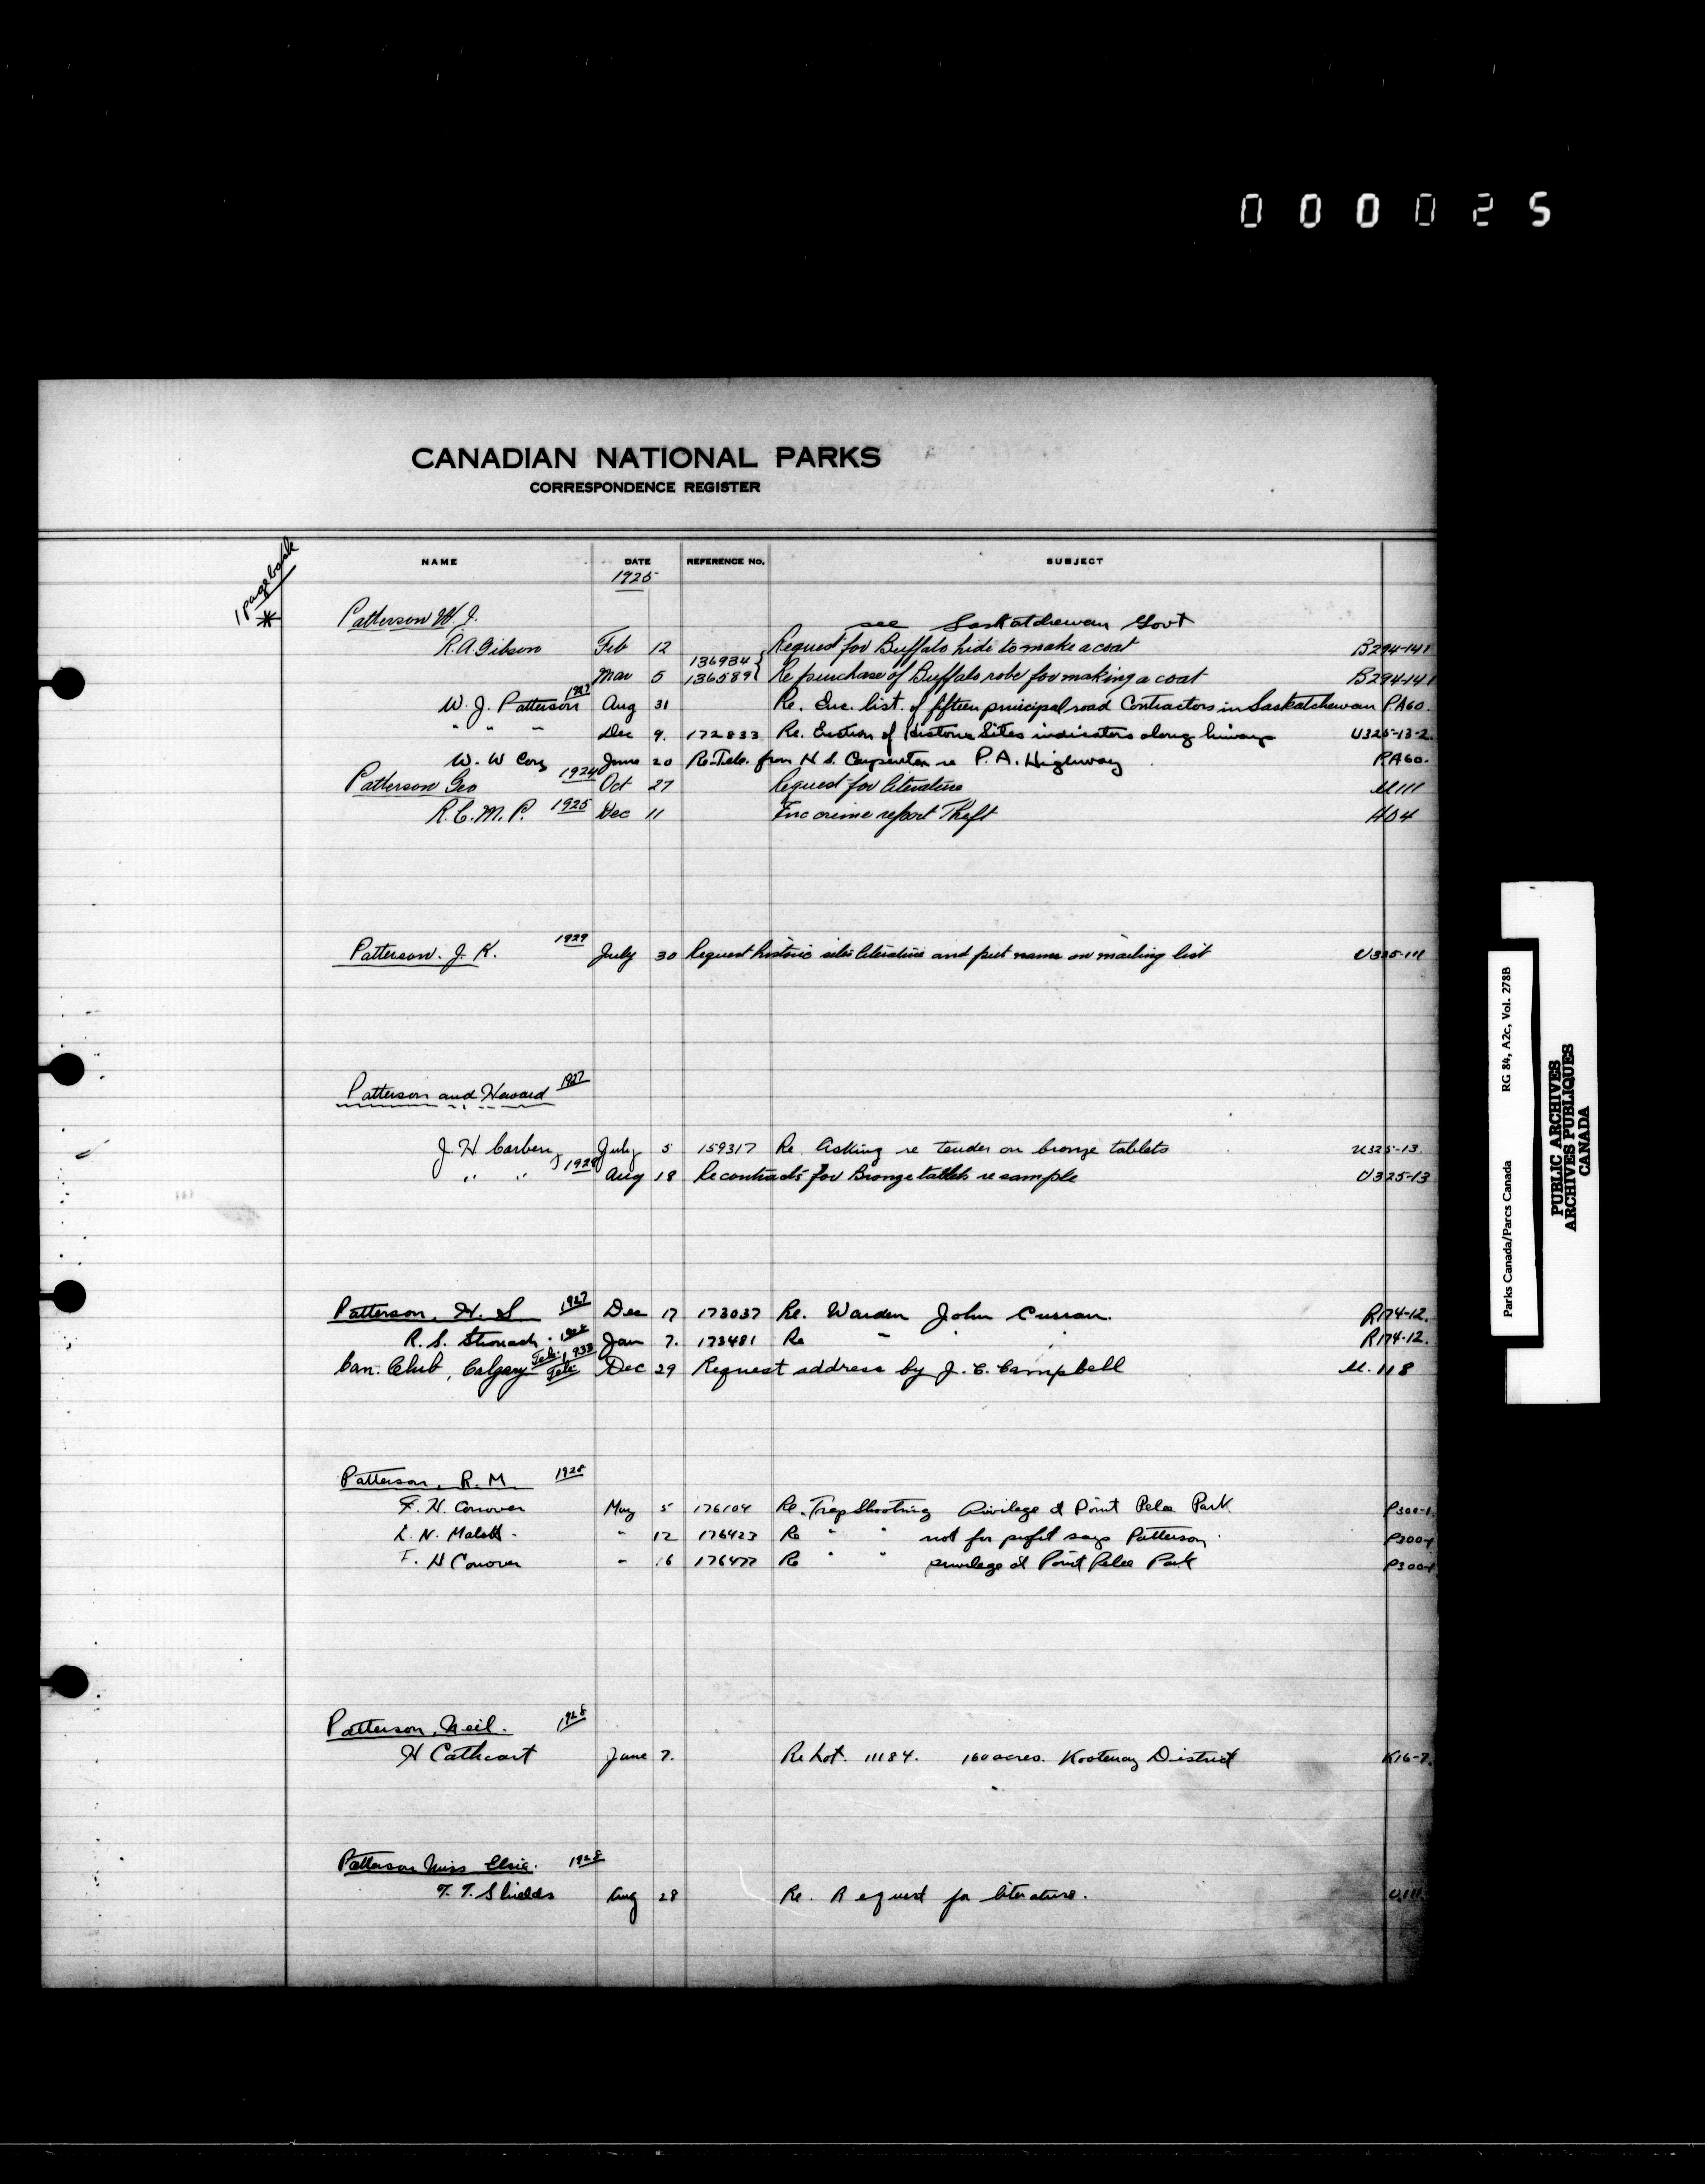 000025
CANADIAN NATIONAL PARKS
CORRESPONDENCE REGISTER
1 page back
*
NAME DATE REFERENCE No. SUBJECT
1925
Patterson W. J. see Saskatchewan Govt
R.A. Gibson Feb 12 Request for Buffalo hide to make a coat B294-141
136934
Mar 5 136589 Re purchase of Buffalo robe for making a coat B294-141
W. J. Patterson 1927 Aug 31 Re. Enc. list. of fifteen principal road Contractors in Saskatchewan PA60.
" " " Dec 9. 172833 Re. Erection of Historic Sites indicators along hiways U325-13-2.
W. W Cory June 20 Re-Tele. from H S. Carpenter re P.A. Highway PA60.
Patterson Geo 1924 Oct 27 Request for literature U111
R.C.M.P. 1925 Dec 11 Enc crime report Theft H04
Patterson. J. K. 1929 July 30 Request historic sites literature and put name on mailing list U325-111
Patterson and Heward 1927
J. H Carbery July 5 159317 Re. Asking re tender on bronze tablets U325-13.
" " 1929 Aug 18 Re contracts for Bronze tablets re sample U325-13
Patterson, H. S 1927 Dec 17 173037 Re. Warden John Curran. R174-12.
R. S. Stronach. 1928 Jan 7. 173481 Re " " " R174-12.
Can. Club, Calgary Tele. 1933 Dec 29 Request address by J. C. Campbell U.118
Patterson, R. M. 1928
F. H. Conover May 5 176104 Re. Trap Shooting Privilege at Point Pelee Park P300-1
L. N. Malott - " 12 176423 Re " " not for profit says Patterson P300-1
F. H Conover " 16 176477 Re " " privilege at Point Pelee Park P300-1
Patterson, Neil. 1928
H Cathcart June 7. Re Lot. 11184. 160 acres. Kootenay District K16-7.
Patterson Miss Elsie. 1928
T. T. Shields Aug 28 Re. Request for literature. U111
Parks Canada/Parcs Canada RG 84, A2c, Vol. 278B
PUBLIC ARCHIVES
ARCHIVES PUBLIQUES
CANADA